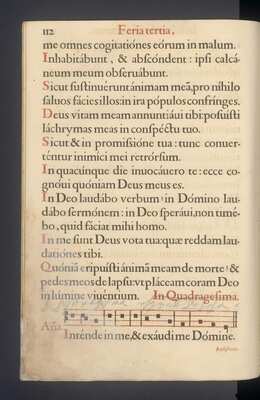 112 Feria tertia,
me omnes cogitatiónes eórum in malum.
Inhabitábunt, & abscóndent : ipsi calcá-
neum meum obseruábunt.
Sicut sustinuerunt ánimam meã, pro níhilo
saluos fácies illos: in ira pópulos confrínges.
Deus vitam meam annuntiáui tibi: posuísti
láchrymas meas in conspéctu tuo.
Sicut & in promissióne tua : tunc conuer-
téntur inimíci mei retrórsum.
In quacúnque die inuocáuero te : ecce co-
gnóui quóniam Deus meus es.
In Deo laudábo verbum : in Dómino lau-
dábo sermónem : in Deo speráui, non timé-
bo, quid fáciat mihi homo.
In me sunt Deus vota tua: quæ reddam lau-
datiónes tibi.
Quóniã eripuísti ánimã meam de morte : &
pedes meos de lapsu: vt pláceam coram Deo
in lúmine viuéntium. In Quadragesima.
Aña
Inténde in me, & exáudi me Dómine.